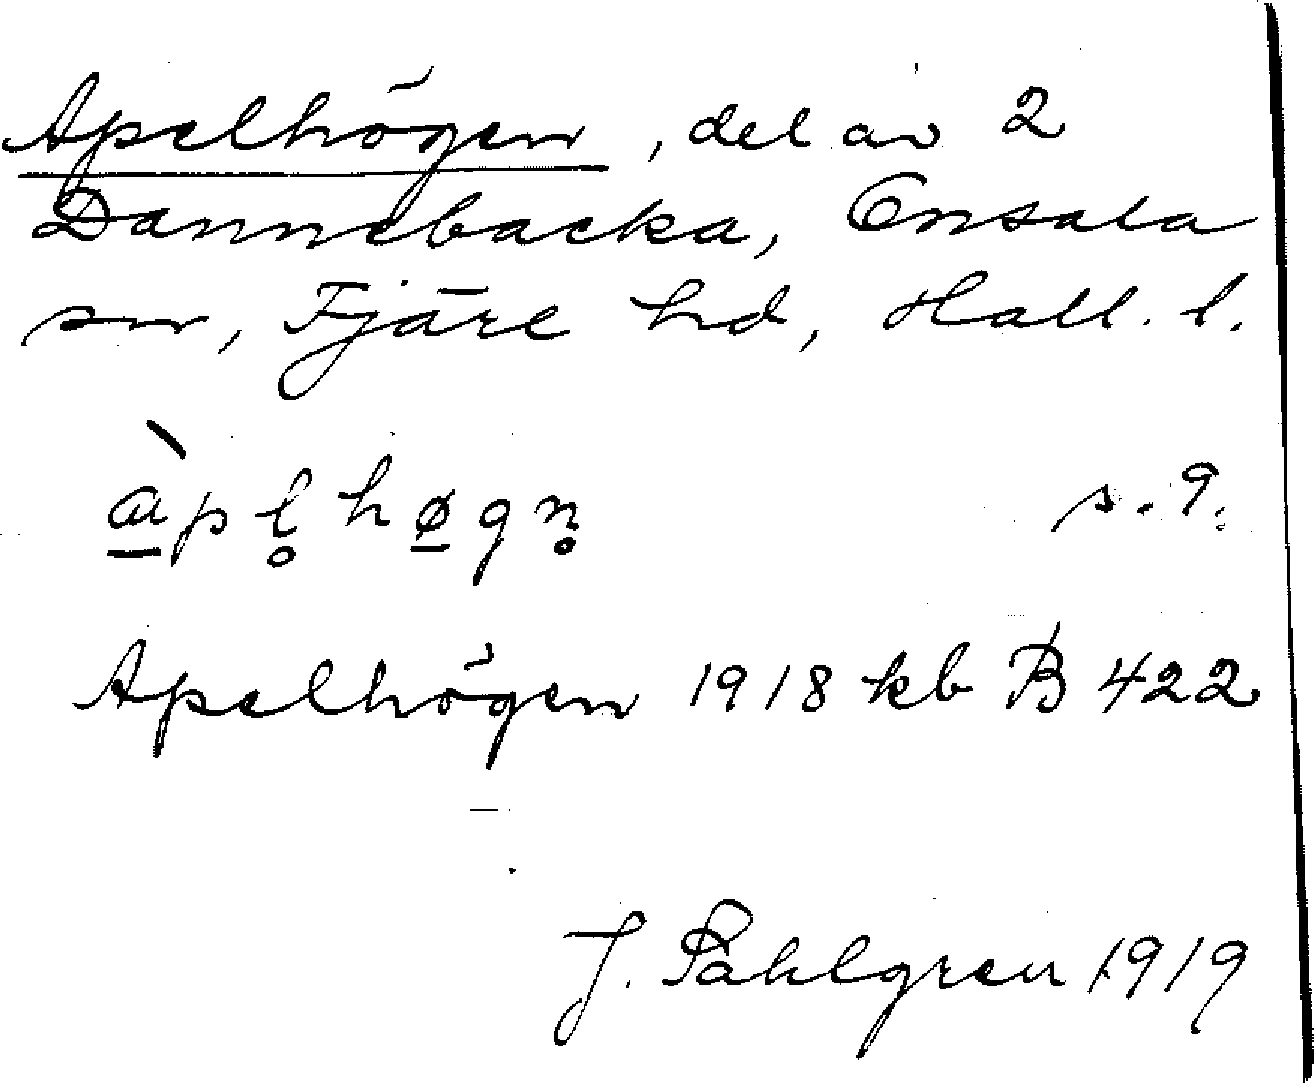 Apelhögen, del av 2
Dannebacka, Onsala
sn, Fjäre hd, Hall. l.
à̱pl̥hø̱gn̥ s. 9.
Apelhögen 1918 kb B 422
J. Sahlgren 1919